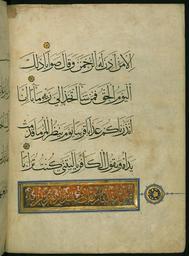 لا من اذن له الرحمن وقال صوابا ذلك
اليوم الحق فمن شا اتخذ الى ربه مابا انا
انذرناكم عذابا قريبا يوم ينظر المرء ما قدمت
يداه ويقول الكافر يا ليتني كنت ترابا